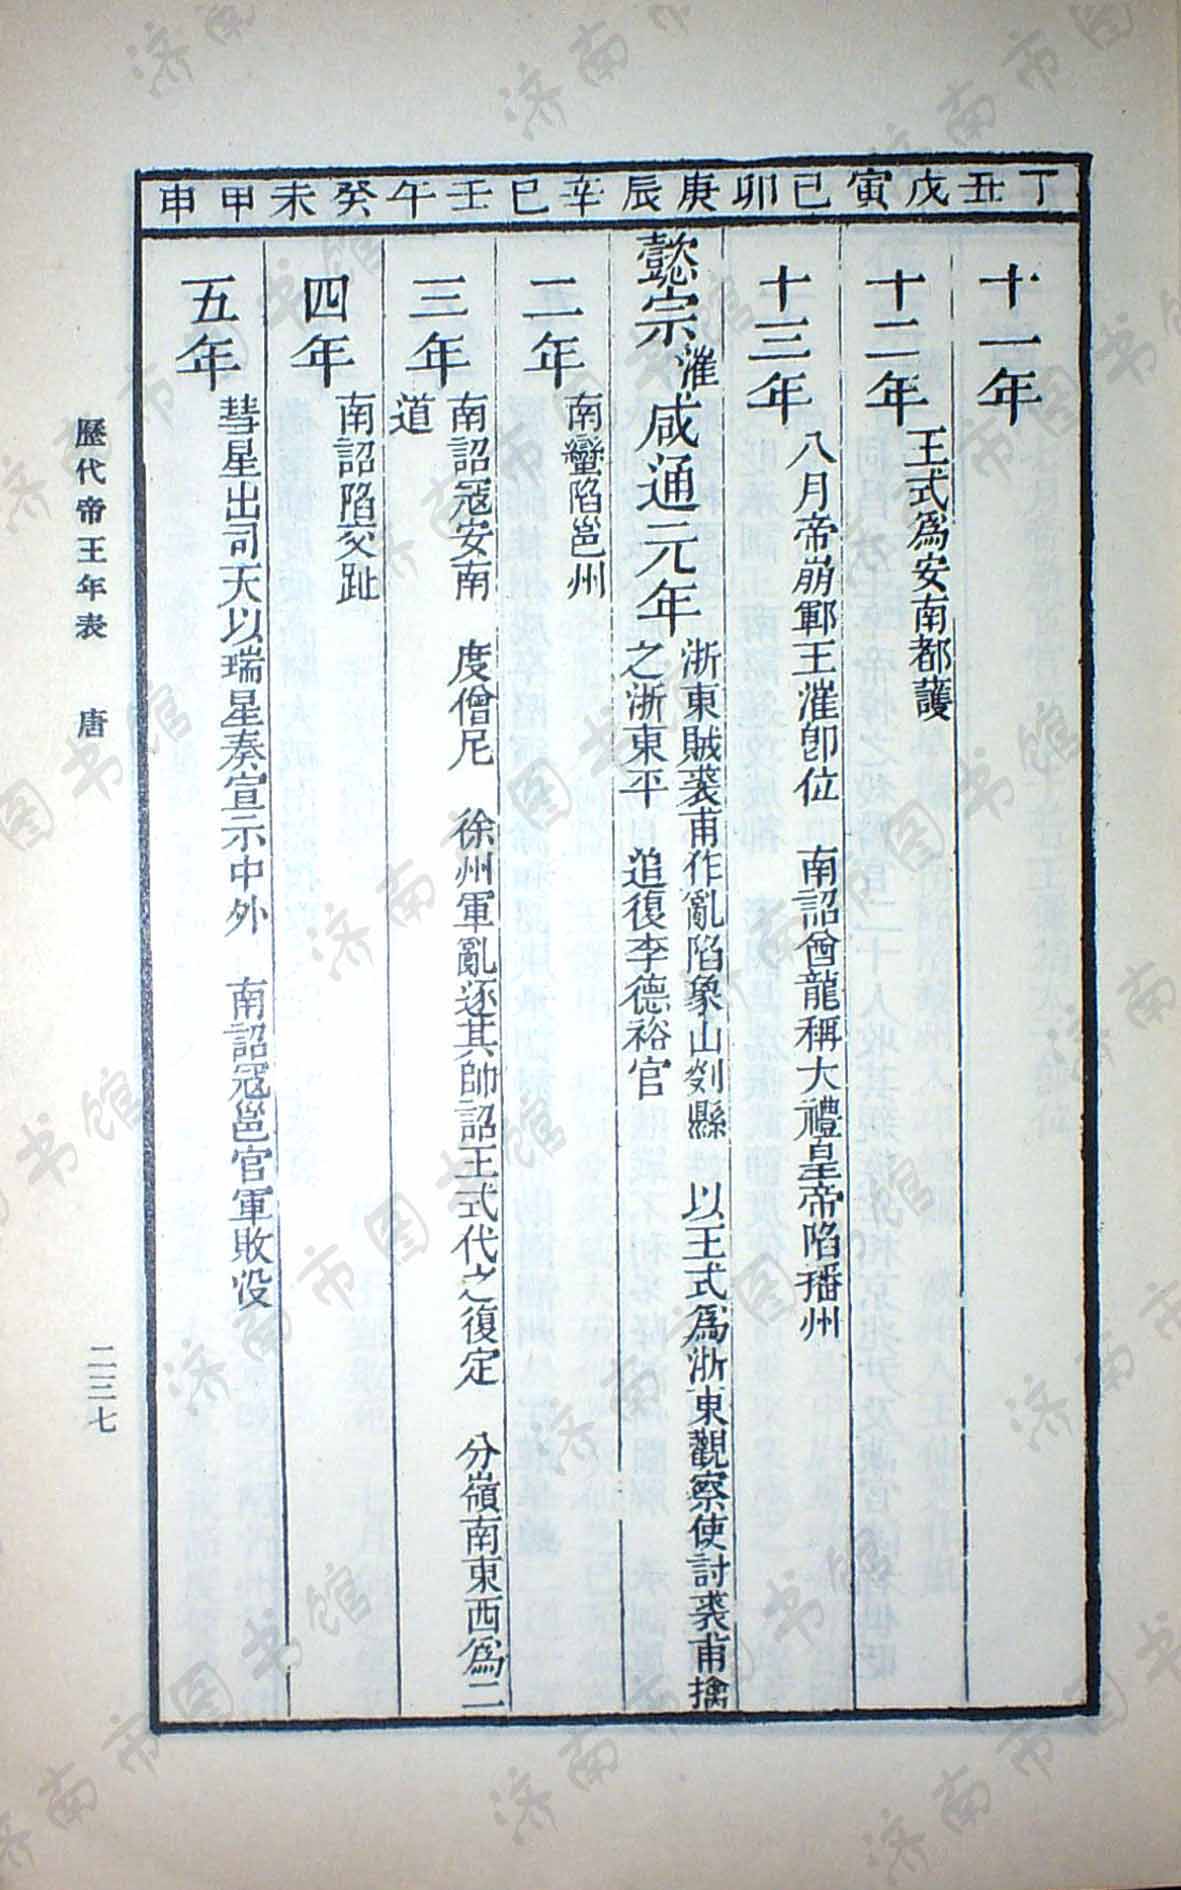 丁丑 戊寅 己卯 庚辰 辛巳 壬午 癸未 甲申
十一年
十二年
王式爲安南都護
十三年
八月帝崩鄆王漼卽位　南詔酋龍稱大禮皇帝陷播州
懿宗漼咸通元年
浙東賊裘甫作亂陷象山剡縣　以王式爲浙東觀察使討裘甫擒
之浙東平　追復李德裕官
二年
南蠻陷邕州
三年
南詔寇安南　度僧尼　徐州軍亂逐其帥詔王式代之復定　分嶺南東西爲二
道
四年
南詔陷交趾
五年
彗星出司天以瑞星奏宣示中外　南詔寇邕官軍敗沒
歷代帝王年表　唐
二三七
济南市图书馆